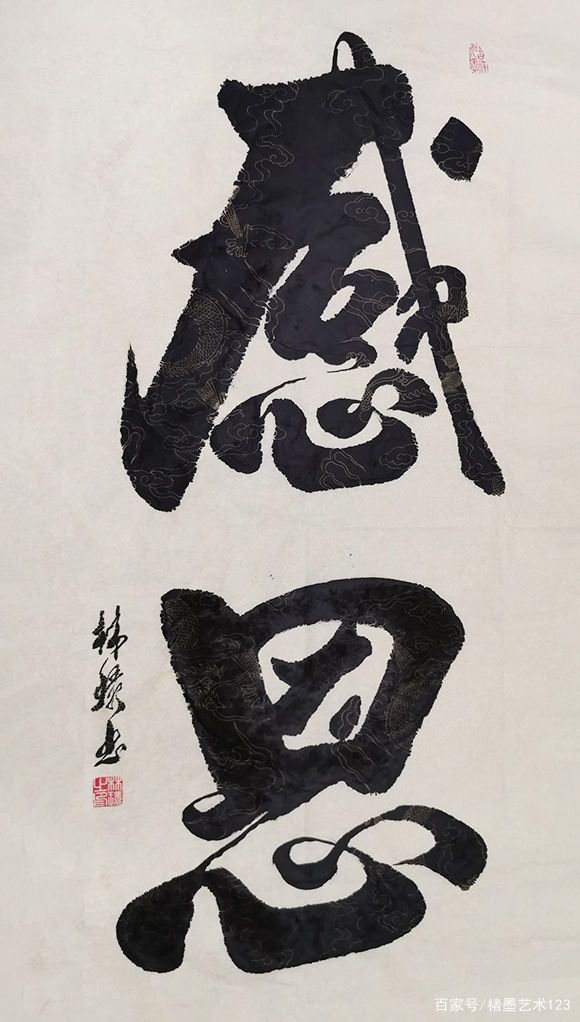 感恩
林 书
百家号/楮墨艺术123